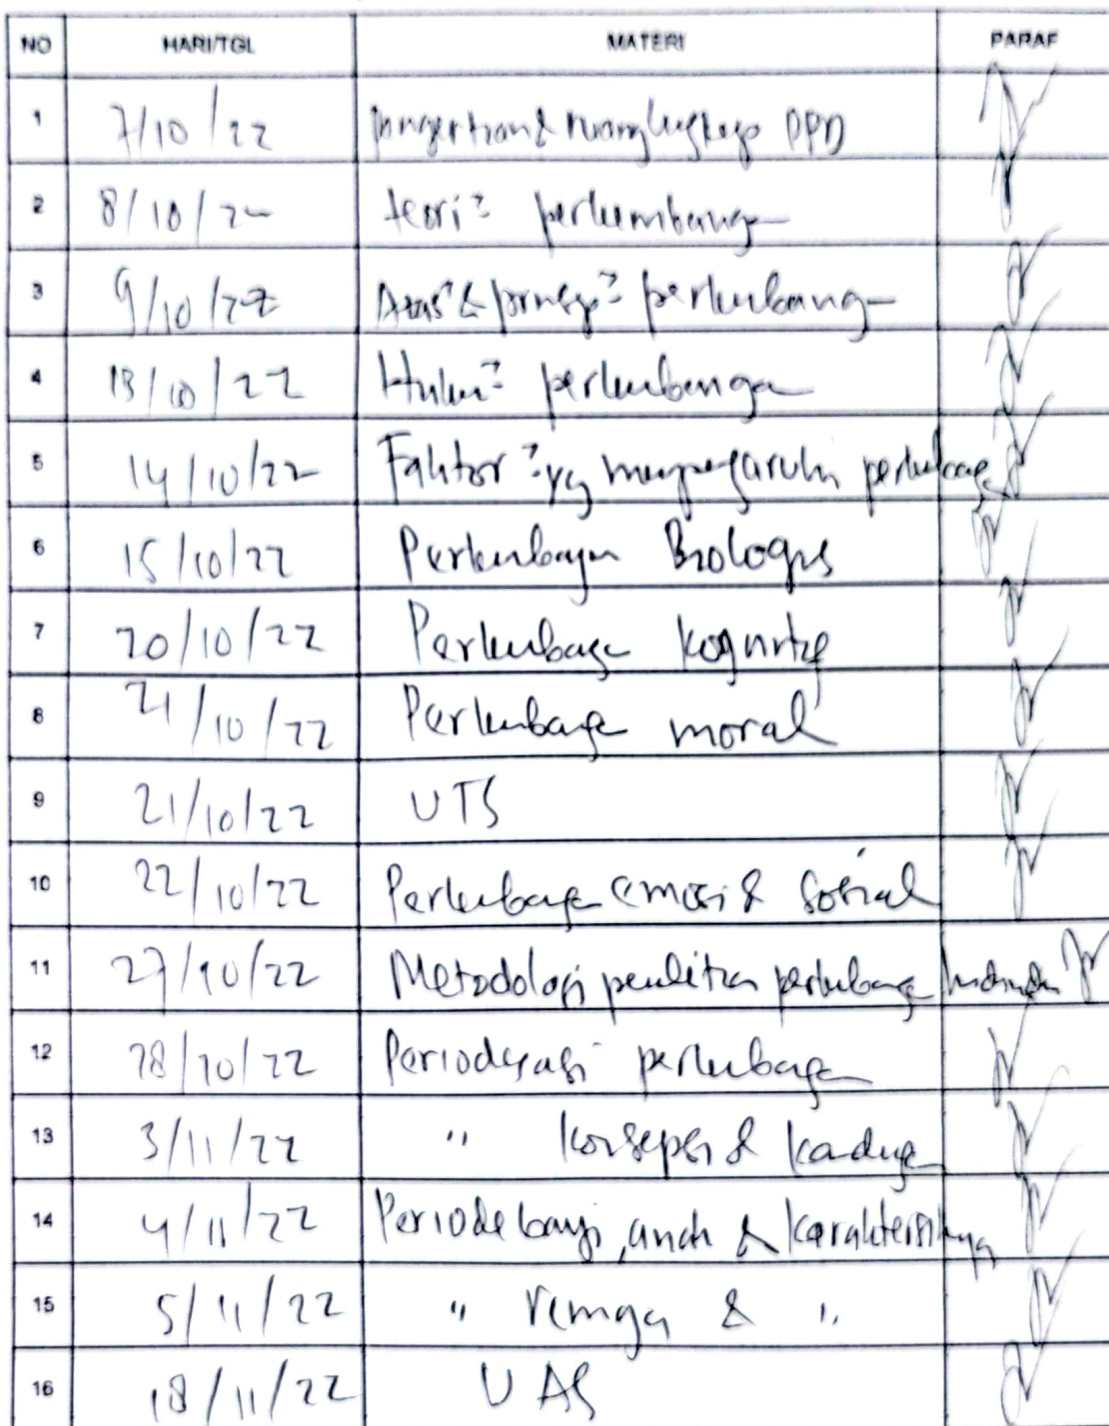 NO HARI/TGL MATERI PARAF
1 7/10/22 pengertian & ruang lingkup PPD
2 8/10/22 teori² perkembangan
3 9/10/22 Azas² & prinsip² perkembang
4 13/10/22 Hukum² perkembanga
5 14/10/22 Faktor² yg mempengaruhi perkembang
6 15/10/22 Perkembangan Biologis
7 20/10/22 Perkembangan kognitif
8 21/10/22 Perkembangan moral
9 21/10/22 UTS
10 22/10/22 Perkembangan emosi & sosial
11 27/10/22 Metodologi penelitian perkembangan
12 28/10/22 Periodesasi perkembangan
13 3/11/22 " konsepsi & kandungan
14 4/11/22 Periode bayi, anak & karakteristiknya
15 5/11/22 " remaja & "
16 18/11/22 UAS